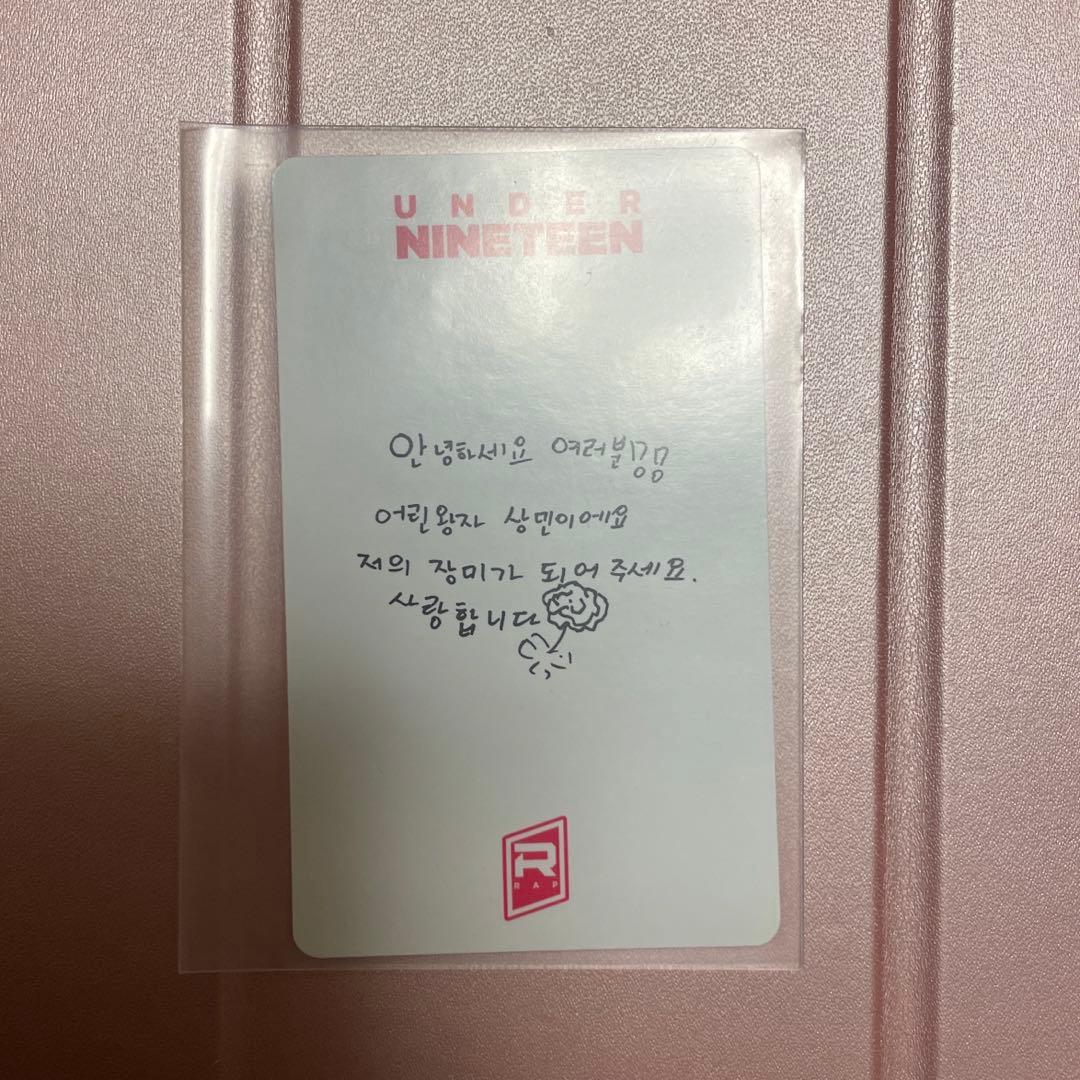 UNDER
NINETEEN
안녕하세요 여러분
어린왕자 상민이에요
저의 장미가 되어 주세요.
사랑합니다
R
RAP